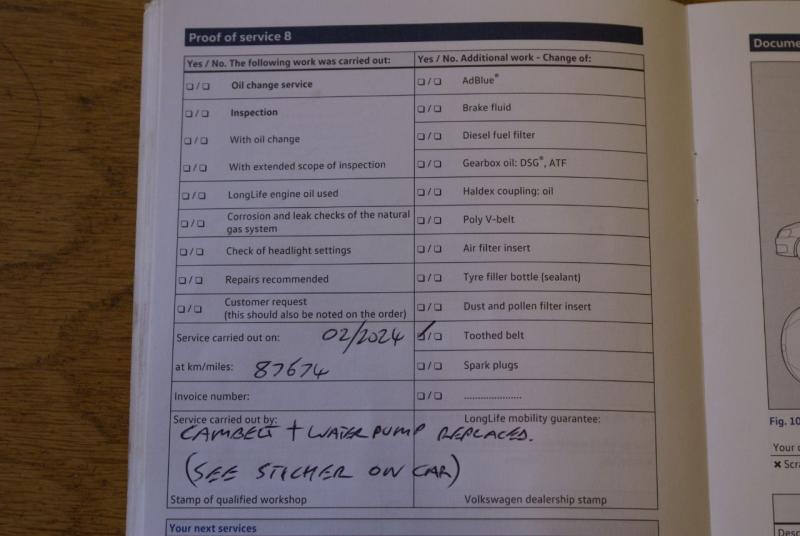 Proof of service 8
Docume
Yes / No. The following work was carried out:
Yes / No. Additional work - Change of:
❑ / ❑ Oil change service
❑ / ❑ AdBlue®
❑ / ❑ Inspection
❑ / ❑ Brake fluid
❑ / ❑ With oil change
❑ / ❑ Diesel fuel filter
❑ / ❑ With extended scope of inspection
❑ / ❑ Gearbox oil: DSG®, ATF
❑ / ❑ LongLife engine oil used
❑ / ❑ Haldex coupling: oil
❑ / ❑ Corrosion and leak checks of the natural
gas system
❑ / ❑ Poly V-belt
❑ / ❑ Check of headlight settings
❑ / ❑ Air filter insert
❑ / ❑ Repairs recommended
❑ / ❑ Tyre filler bottle (sealant)
❑ / ❑ Customer request
(this should also be noted on the order)
❑ / ❑ Dust and pollen filter insert
Service carried out on: 02/2024
☑ / ❑ Toothed belt
at km/miles: 87674
❑ / ❑ Spark plugs
Invoice number:
❑ / ❑ .....................
Service carried out by:
LongLife mobility guarantee:
CAMBELT + WATER PUMP REPLACED.
(SEE STICKER ON CAR)
Stamp of qualified workshop
Volkswagen dealership stamp
Your next services
Fig. 10
Your
× Scr
Desc